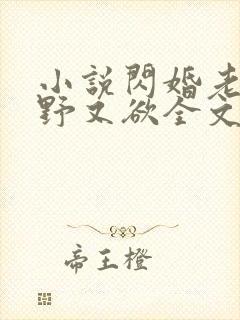 小説閃婚老
野又欲全文
帝王橙